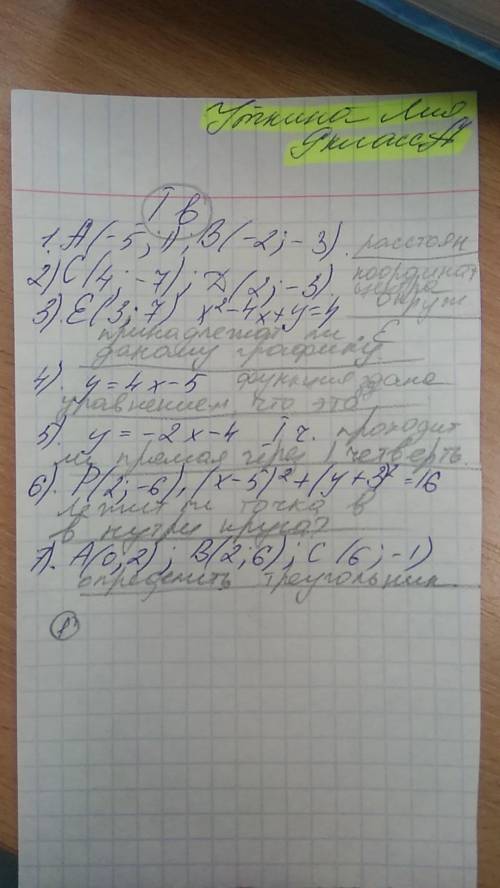 Уткина Лия
9 класс "А"
I в
1. А(-5; 1), В(-2; -3). расстоян
2) С(4; -7); D(2; -3) координат
центра
3) Е(3; 7) x²-4x+y=4 окруж
принадлежит ли Е
даному графику?
4) y=4x-5 функция здана
уравнением, что это?
5). y=-2x-4 I ч. проходит
ли прямая через 1 четверть
6) Р(2; -6), (x-5)²+(y+3)²=16
Лежит ли точка в
в нутри круга?
7). А(0; 2); В(2; 6); С(6; -1)
определить треугольник.